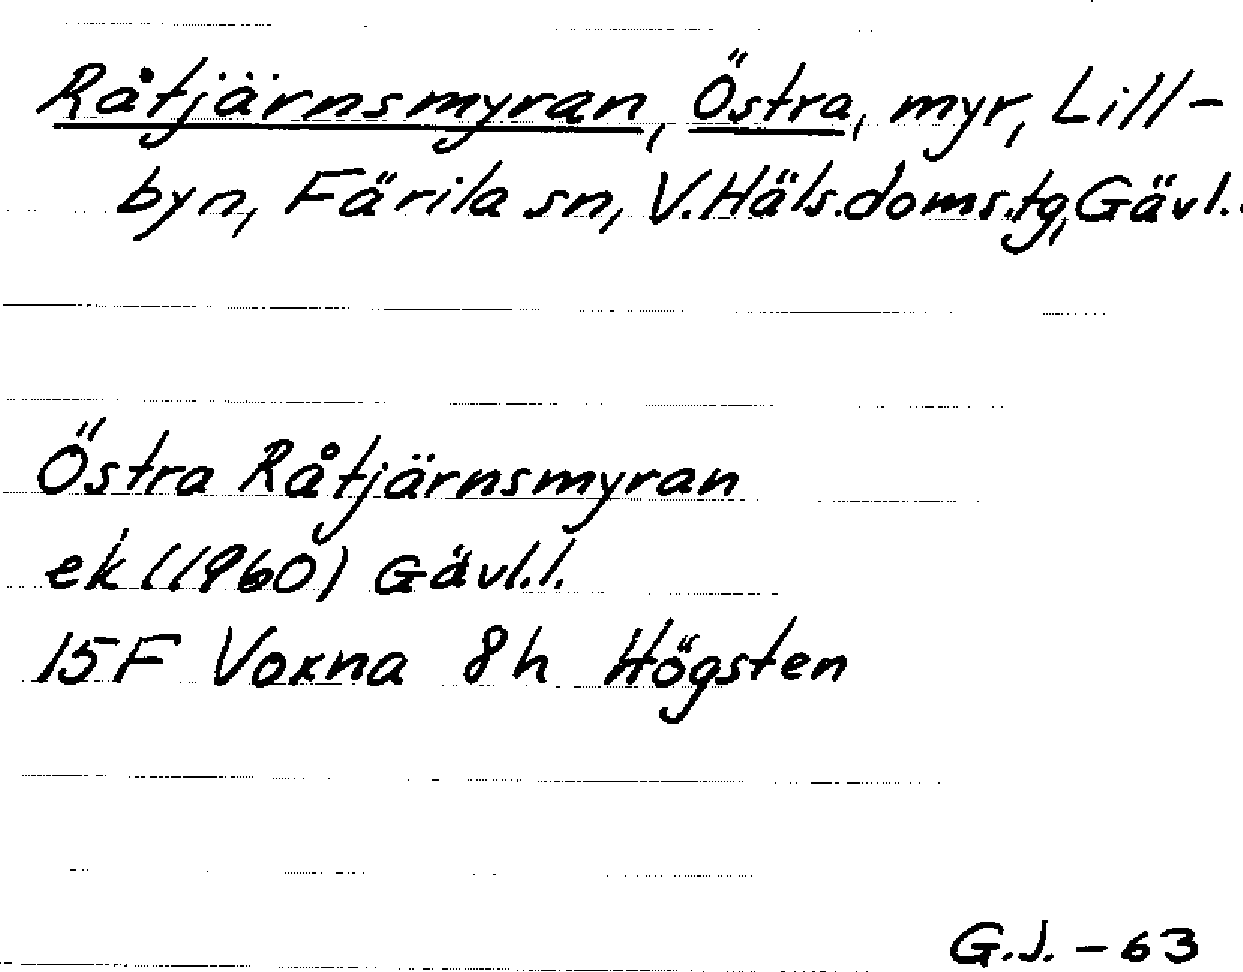 Råtjärnsmyran, Östra, myr, Lill-
byn, Färila sn, V.Häls.doms.tg, Gävl.
Östra Råtjärnsmyran
ek (1960) Gävl.l.
15F Voxna 8h Högsten
G.J. - 63